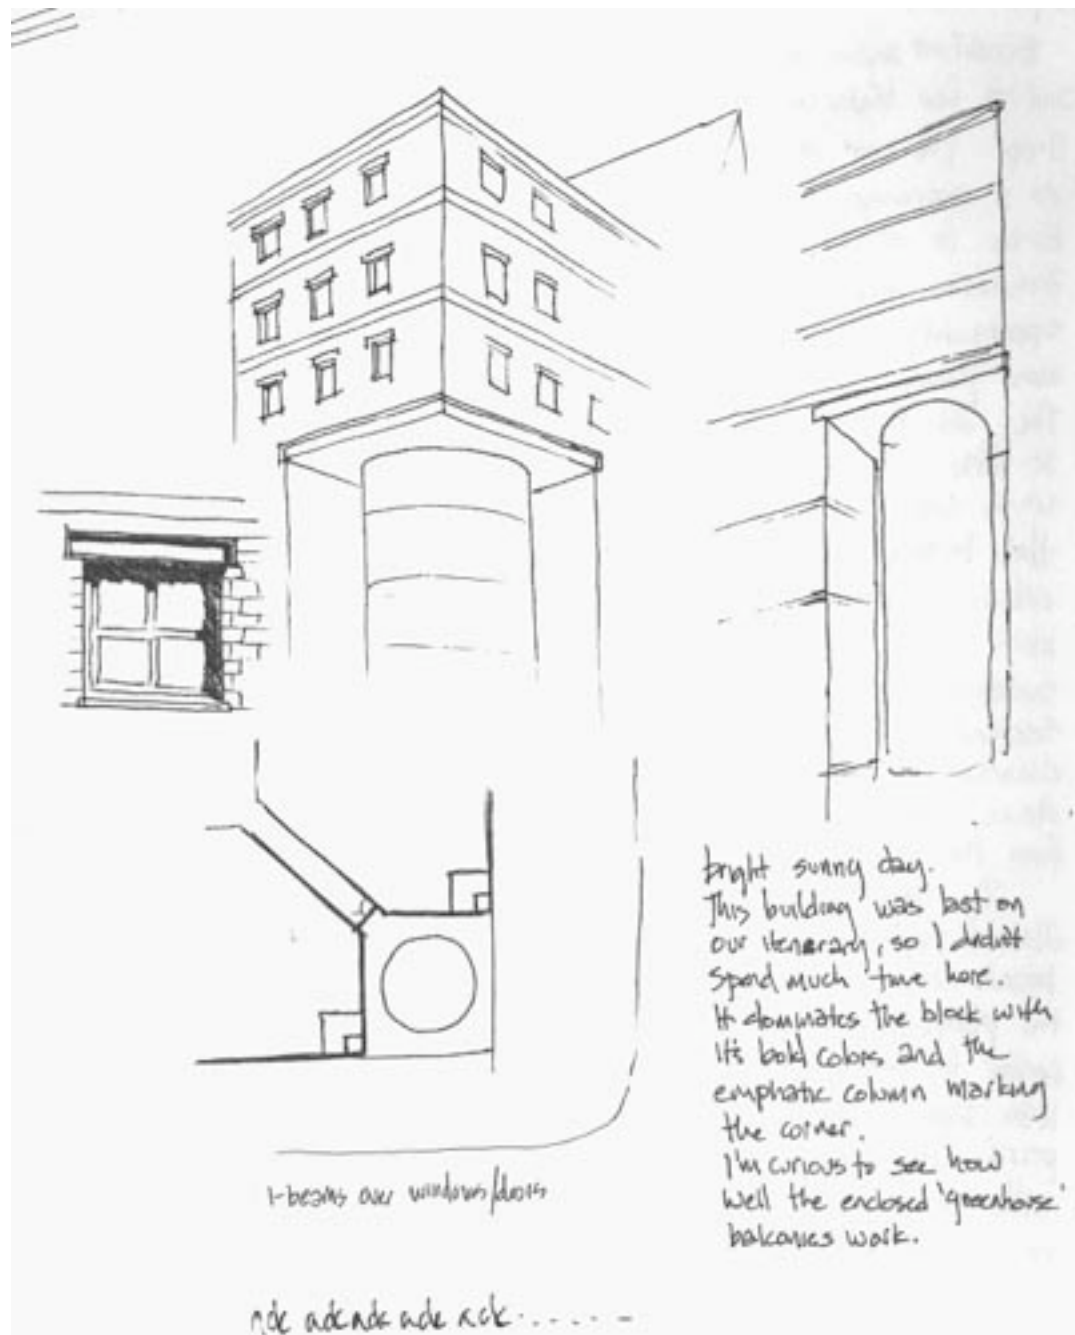 bright sunny day.
This building was last on
our itenerary, so I didn't
spend much time here.
It dominates the block with
it's bold colors and the
emphatic column marking
the corner.
I'm curious to see how
well the enclosed 'greenhouse'
balconies work.
I-beams over windows/doors